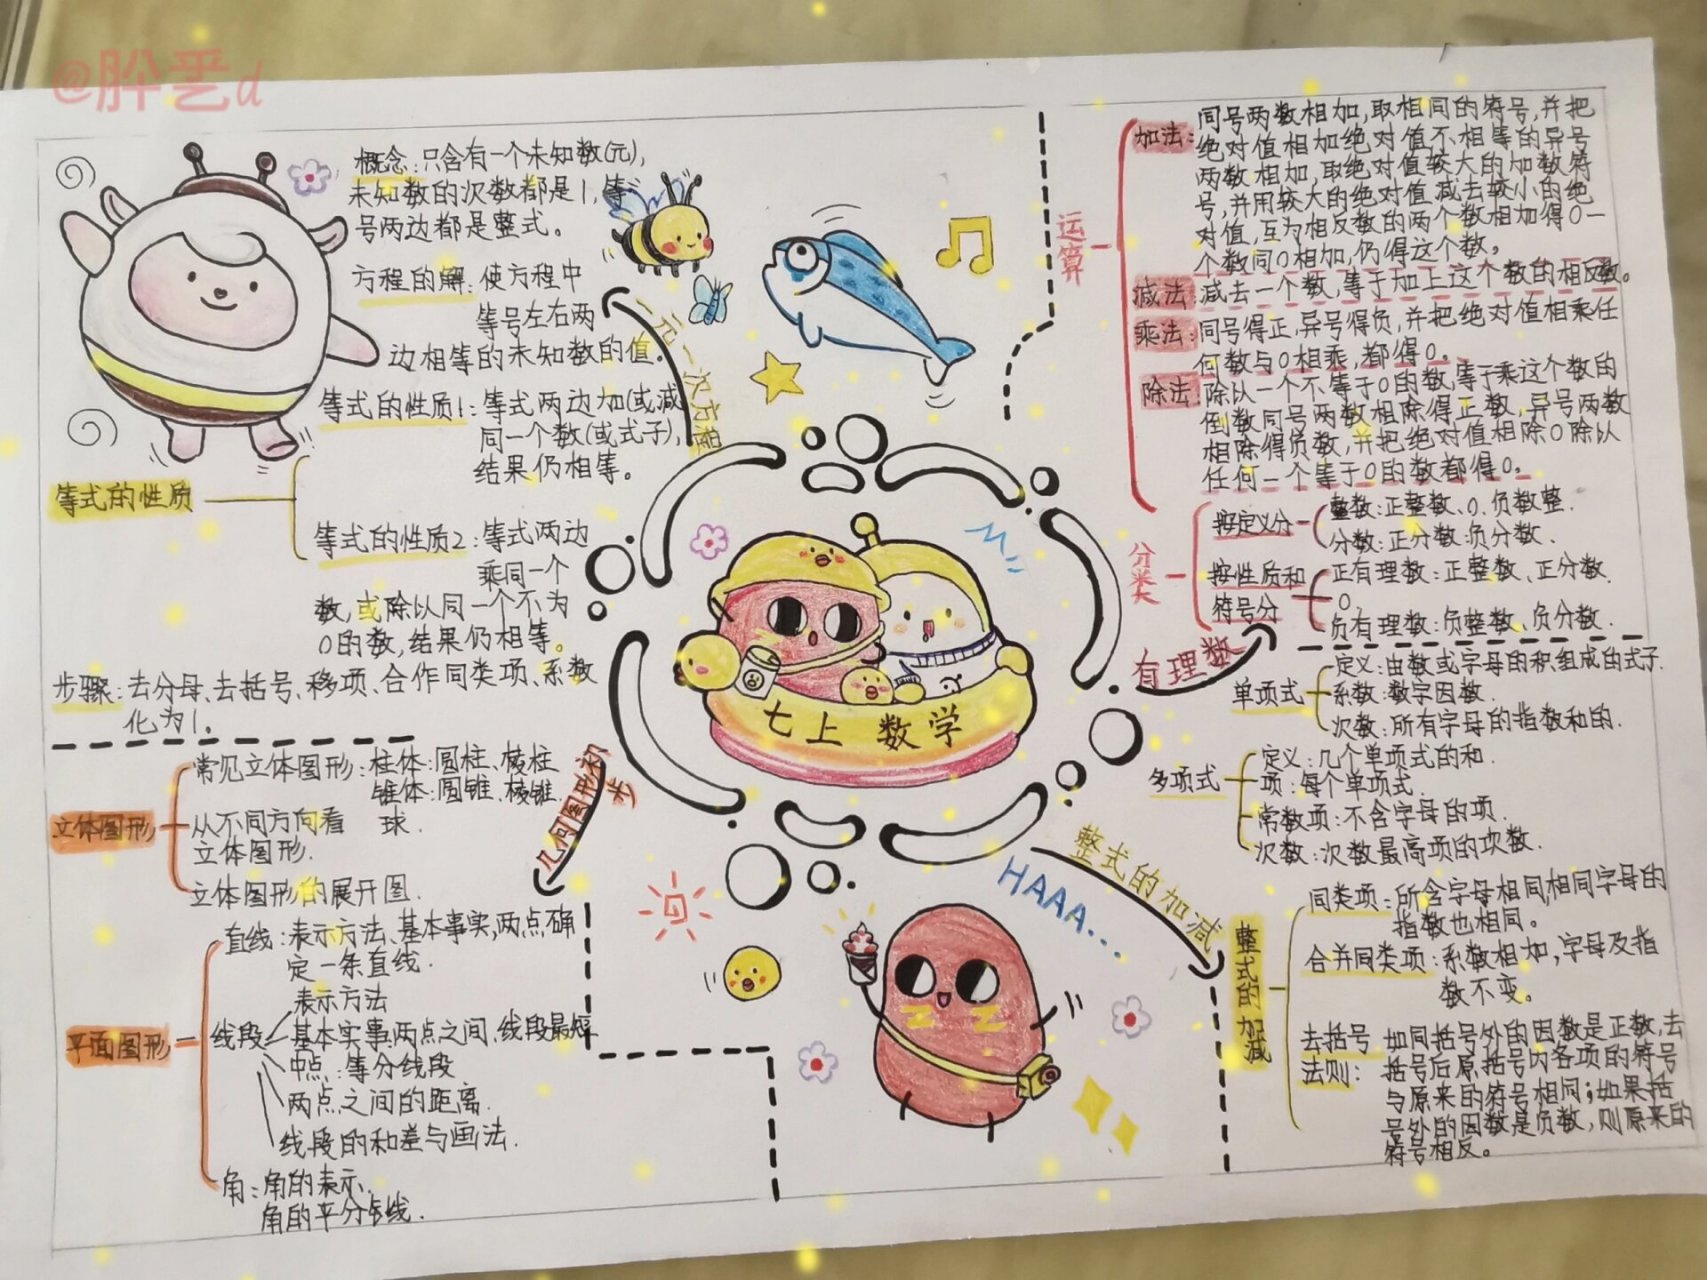 @肸乼d
概念:只含有一个未知数(元),
未知数的次数都是1,等
号两边都是整式。
方程的解:使方程中
等号左右两
边相等的未知数的值.
一元一次方程
等式的性质
等式的性质1:等式两边加(或减
同一个数(或式子),
结果仍相等。
等式的性质2:等式两边
乘同一个
数,或除以同一个不为
0的数,结果仍相等。
步骤:去分母、去括号、移项、合作同类项、系数
化为1。
几何图形初步
立体图形
常见立体图形:柱体:圆柱、棱柱
锥体:圆锥、棱锥.
球.
从不同方向看
立体图形.
立体图形的展开图.
平面图形
直线:表示方法、基本事实,两点确
定一条直线.
线段
表示方法
基本实事,两点之间,线段最短
中点:等分线段
两点之间的距离.
线段的和差与画法.
角:角的表示.
角的平分线.
七上 数学
HAAA...
有理数
运算
加法:同号两数相加,取相同的符号,并把
绝对值相加绝对值不相等的异号
两数相加,取绝对值较大的加数符
号,并用较大的绝对值减去较小的绝
对值,互为相反数的两个数相加得0一
个数同0相加,仍得这个数。
减法:减去一个数,等于加上这个数的相反数。
乘法:同号得正,异号得负,并把绝对值相乘任
何数与0相乘,都得0。
除法:除以一个不等于0的数,等于乘这个数的
倒数同号两数相除得正数,异号两数
相除得负数,并把绝对值相除0除以
任何一个等于0的数都得0。
分类
按定义分
整数:正整数、0、负数整.
分数:正分数.负分数.
按性质和
符号分
正有理数:正整数、正分数.
0.
负有理数:负整数、负分数.
整式的加减
单项式
定义:由数或字母的积组成的式子.
系数:数字因数.
次数:所有字母的指数和的.
多项式
定义:几个单项式的和.
项:每个单项式.
常数项:不含字母的项.
次数:次数最高项的次数.
整式的加减
同类项:所含字母相同,相同字母的
指数也相同。
合并同类项:系数相加,字母及指
数不变。
去括号
法则:
如同括号外的因数是正数,去
括号后原括号内各项的符号
与原来的符号相同;如果括
号外的因数是负数,则原来的
符号相反。